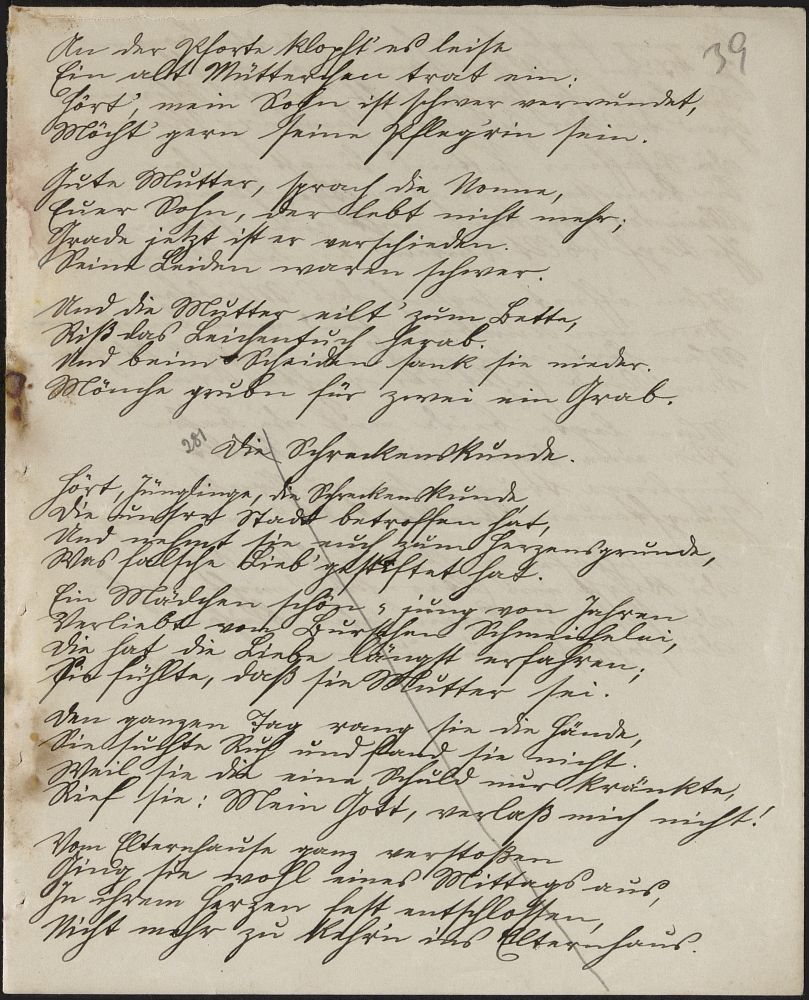 39
An der Pforte klopft' es leise
Ein alt' Mütterchen trat ein.
Hört', mein Sohn ist schwer verwundet,
Möcht' gern seine Pfleg'rin sein.
Gute Mutter, sprach die Nonne,
Euer Sohn, der lebt nicht mehr;
Grade jetzt ist er verschieden.
Seine Leiden waren schwer.
Und die Mutter eilt' zum Bette,
Riß das Leichentuch herab.
Und beim Scheiden sank sie nieder.
Mönche gruben für zwei ein Grab.
281 Die Schreckenskunde.
Hört, Jünglinge, die Schreckenskunde
Die unsre Stadt betroffen hat,
Und nehmt sie euch zum Herzensgrunde,
Was falsche Lieb' gestiftet hat.
Ein Mädchen schön u jung von Jahren
Verliebt vom Burschen Schmeichelei,
Die hat die Liebe längst erfahren;
Sie fühlte, daß sie Mutter sei.
Den ganzen Tag rang sie die Hände,
Sie suchte Ruh und fand sie nicht.
Weil sie die eine Schuld nur kränkte,
Rief sie: Mein Gott, verlaß mich nicht!
Vom Elternhause ganz verstoßen
Ging sie wohl eines Mittags aus,
In ihrem Herzen fest entschlossen,
Nicht mehr zu kehr'n ins Elternhaus.